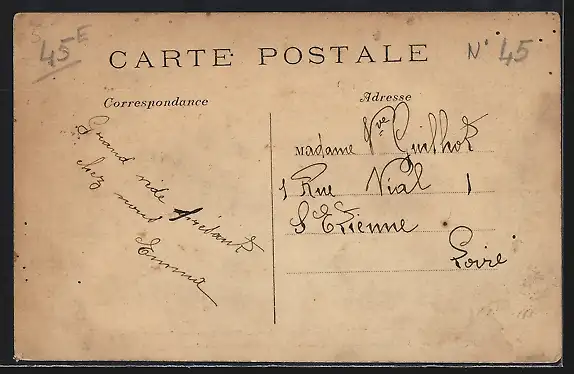 45E
N° 45
CARTE POSTALE
Correspondance
Adresse
Grand vide
chez nous
Emma
Madame Vve Guilhot
1 Rue Vial 1
St Etienne
Loire